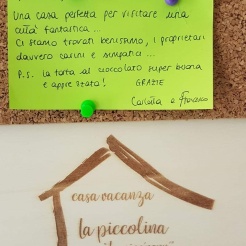 Una casa perfetta per visitare una
città fantastica...
Ci siamo trovati benissimo, i proprietari
davvero carini e simpatici...
P.S. la torta al cioccolato super buona
e apprezzata! GRAZIE
Carlotta e Francesco
casa vacanza
la piccolina